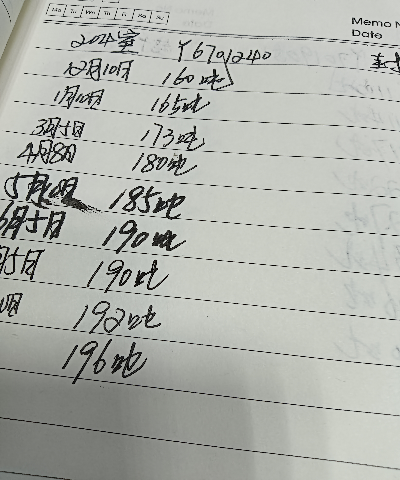 Mo Tu We Th Fr Sa Su
Memo N
Date
204室 Y6701240
12月10日 160吨
1月10日 165吨
3月5日 173吨
4月8日 180吨
5月10日 185吨
6月5日 190吨
月5日 190吨
192吨
196吨